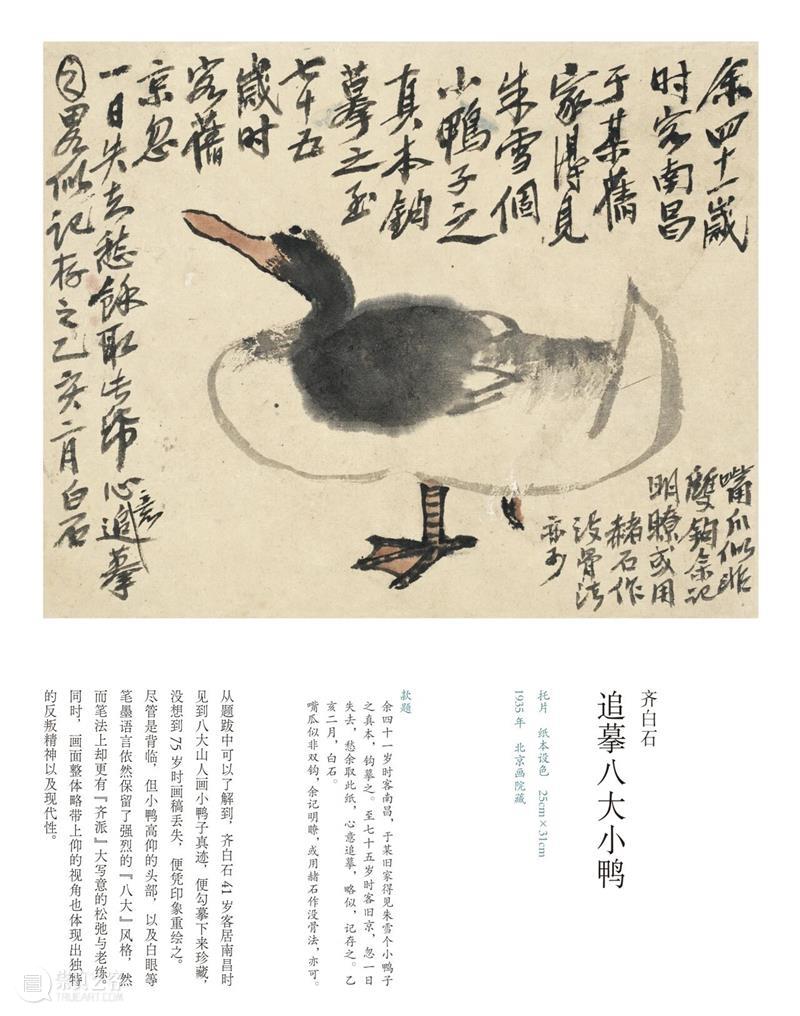 余四十一歲
时客南昌
于某舊
家得見
朱雪個
小鴨子之
真本鈎
摹之至
七十五
歲时
客舊
京忽
一日失去愁餘取此帋心意追摹
之畧似記存之乙亥二月白石
嘴爪似非
雙鈎余記
明瞭或用
赭石作
没骨法
亦可
齐白石
追摹八大小鸭
托片 纸本设色 25cm×31cm
1935年 北京画院藏
款题
余四十一岁时客南昌，于某旧家得见朱雪个小鸭子
之真本，钩摹之。至七十五岁时客旧京，忽一日
失去，愁余取此纸，心意追摹，略似，记存之。乙
亥二月，白石。
嘴瓜似非双钩，余记明瞭，或用赭石作没骨法，亦可。
从题跋中可以了解到，齐白石41岁客居南昌时
见到八大山人画小鸭子真迹，便勾摹下来珍藏，
没想到75岁时画稿丢失，便凭印象重绘之。
尽管是背临，但小鸭高仰的头部，以及白眼等
笔墨语言依然保留了强烈的『八大』风格，然
而笔法上却更有『齐派』大写意的松弛与老练。
同时，画面整体略带上仰的视角也体现出独特
的反叛精神以及现代性。
崇真艺客
TRUEART.COM